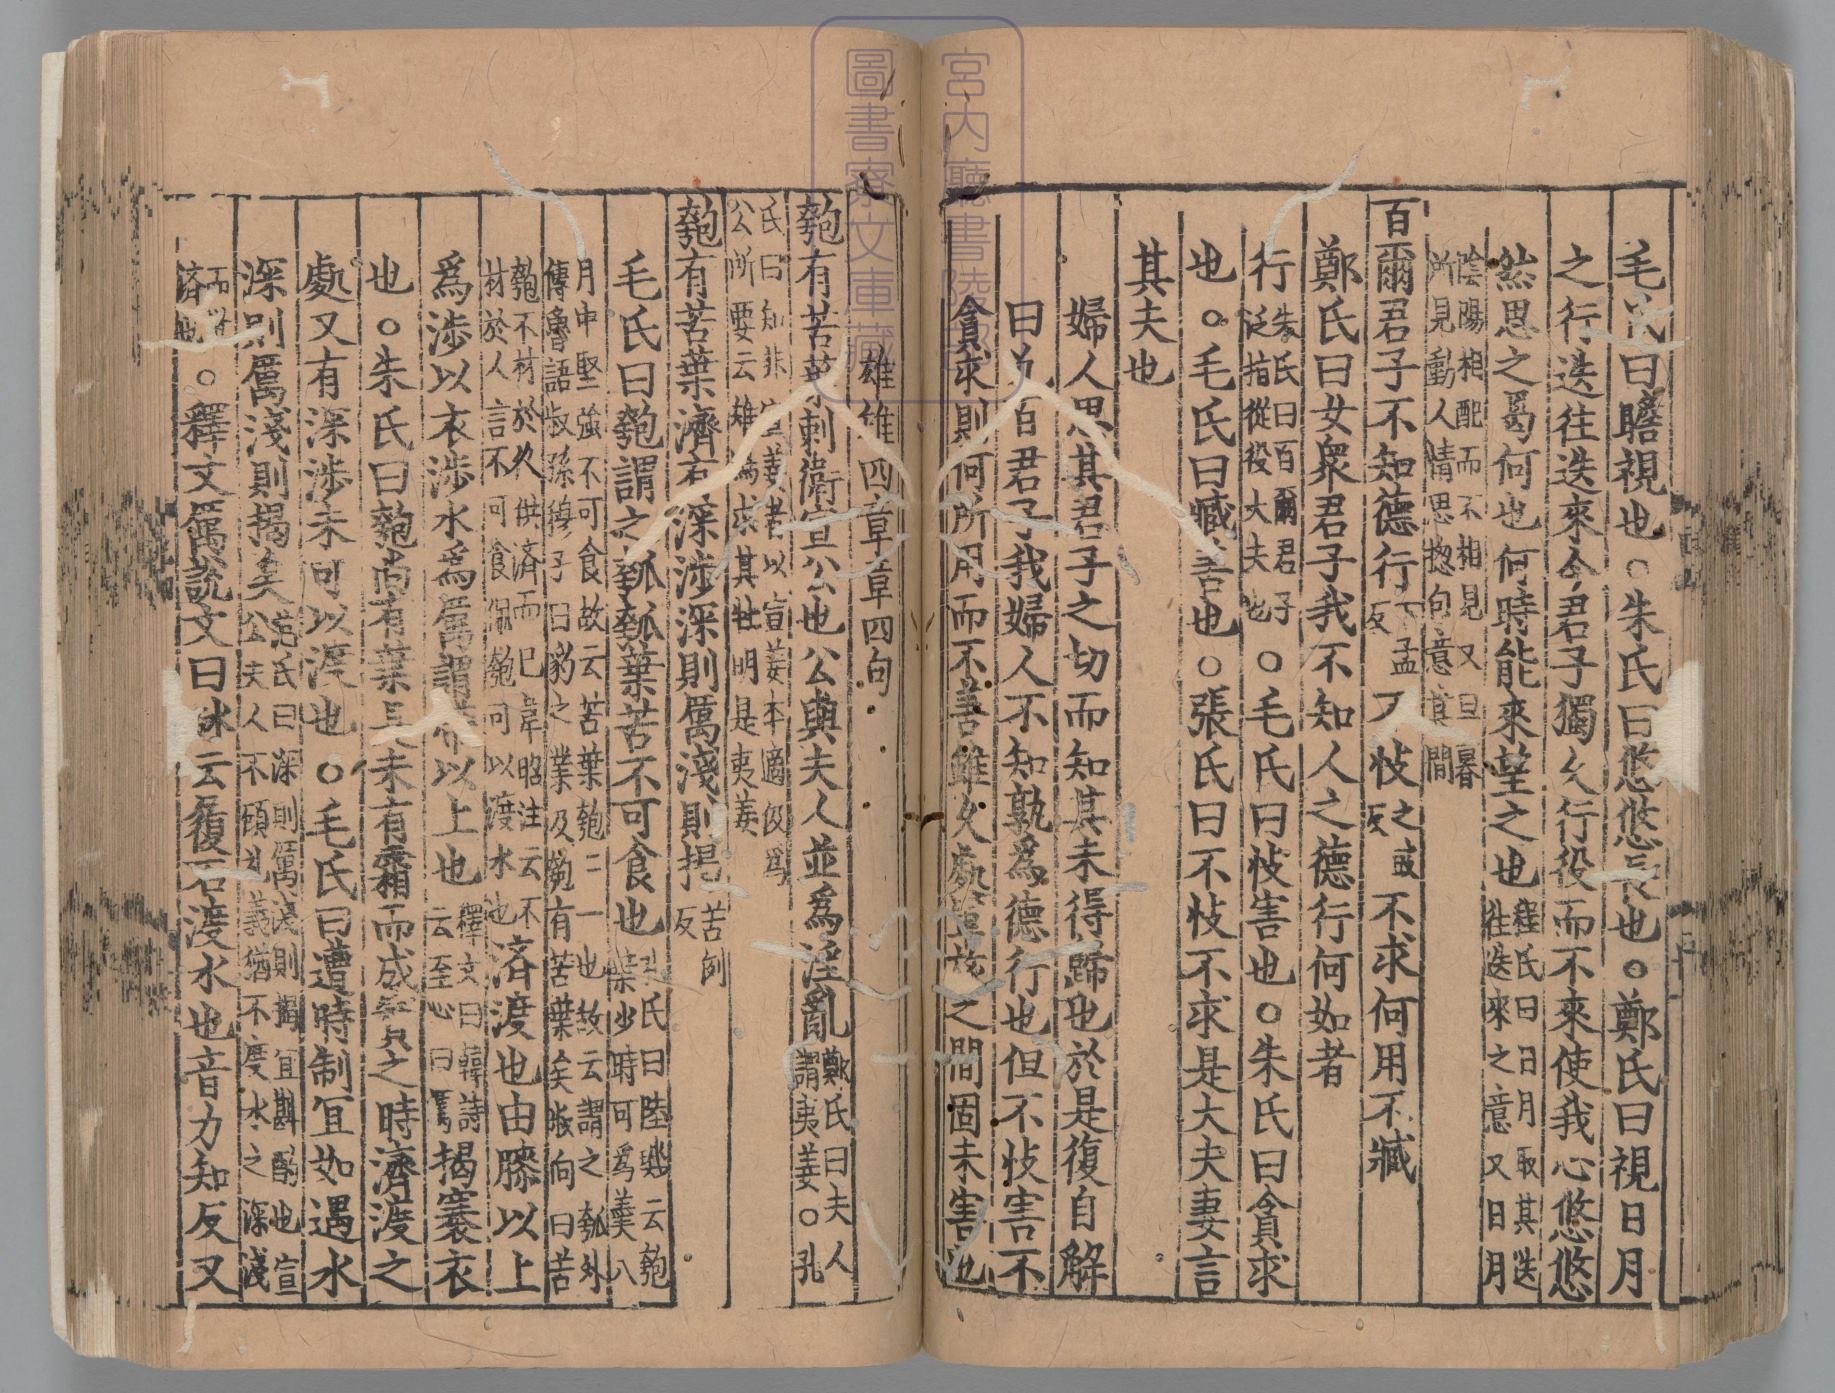 毛氏曰瞻視也○朱氏曰悠悠長也○鄭氏曰視日月
之行迭往迭來今君子獨久行役而不來使我心悠悠
然思之曷何也何時能來望之也程氏曰日月取其迭往迭來之意又日月
陰陽相配而不相見又旦暮所見動人情思惣句意其間
百爾君子不知德行下孟反不忮之豉反不求何用不臧
鄭氏曰女衆君子我不知人之德行何如者
行朱氏曰百爾君子泛指從役大夫也○毛氏曰忮害也○朱氏曰貪求
也○毛氏曰臧善也○張氏曰不忮不求是大夫妻言
其夫也
婦人思其君子之切而知其未得歸也於是復自解
曰凡百君子我婦人不知孰為德行也但不忮害不
貪求則何所用而不善雖久處軍旅之間固未害也
雄雉四章章四句
匏有苦葉刺衛宣公也公與夫人並為淫亂鄭氏曰夫人謂夷姜○孔
氏曰知非宣姜者以宣姜本適伋為公所要云雉鳴求其牡明是夷姜
匏有苦葉濟有深涉深則厲淺則揭苦例反
毛氏曰匏謂之瓠瓠葉苦不可食也孔氏曰陸璣云匏葉少時可為羹八
月中堅強不可食故云苦葉匏瓠一也故云謂之瓠外傳魯語叔孫穆子曰豹之業及匏有苦葉矣叔向曰苦
匏不材於人供濟而已韋昭注云不材於人言不可食佩匏可以渡水也濟渡也由膝以上
為涉以衣涉水為厲謂由帶以上也釋文曰韓詩云至心曰厲揭褰衣
也○朱氏曰匏尚有葉且未有霜而成實之時濟渡之
處又有深涉未可以渡也○毛氏曰遭時制宜如遇水
深則厲淺則揭矣范氏曰深則厲淺則揭宜斟酌也宣公夫人不顧礼義猶不度水之深淺
而濟也○釋文厲說文曰砅云履石渡水也音力知反又